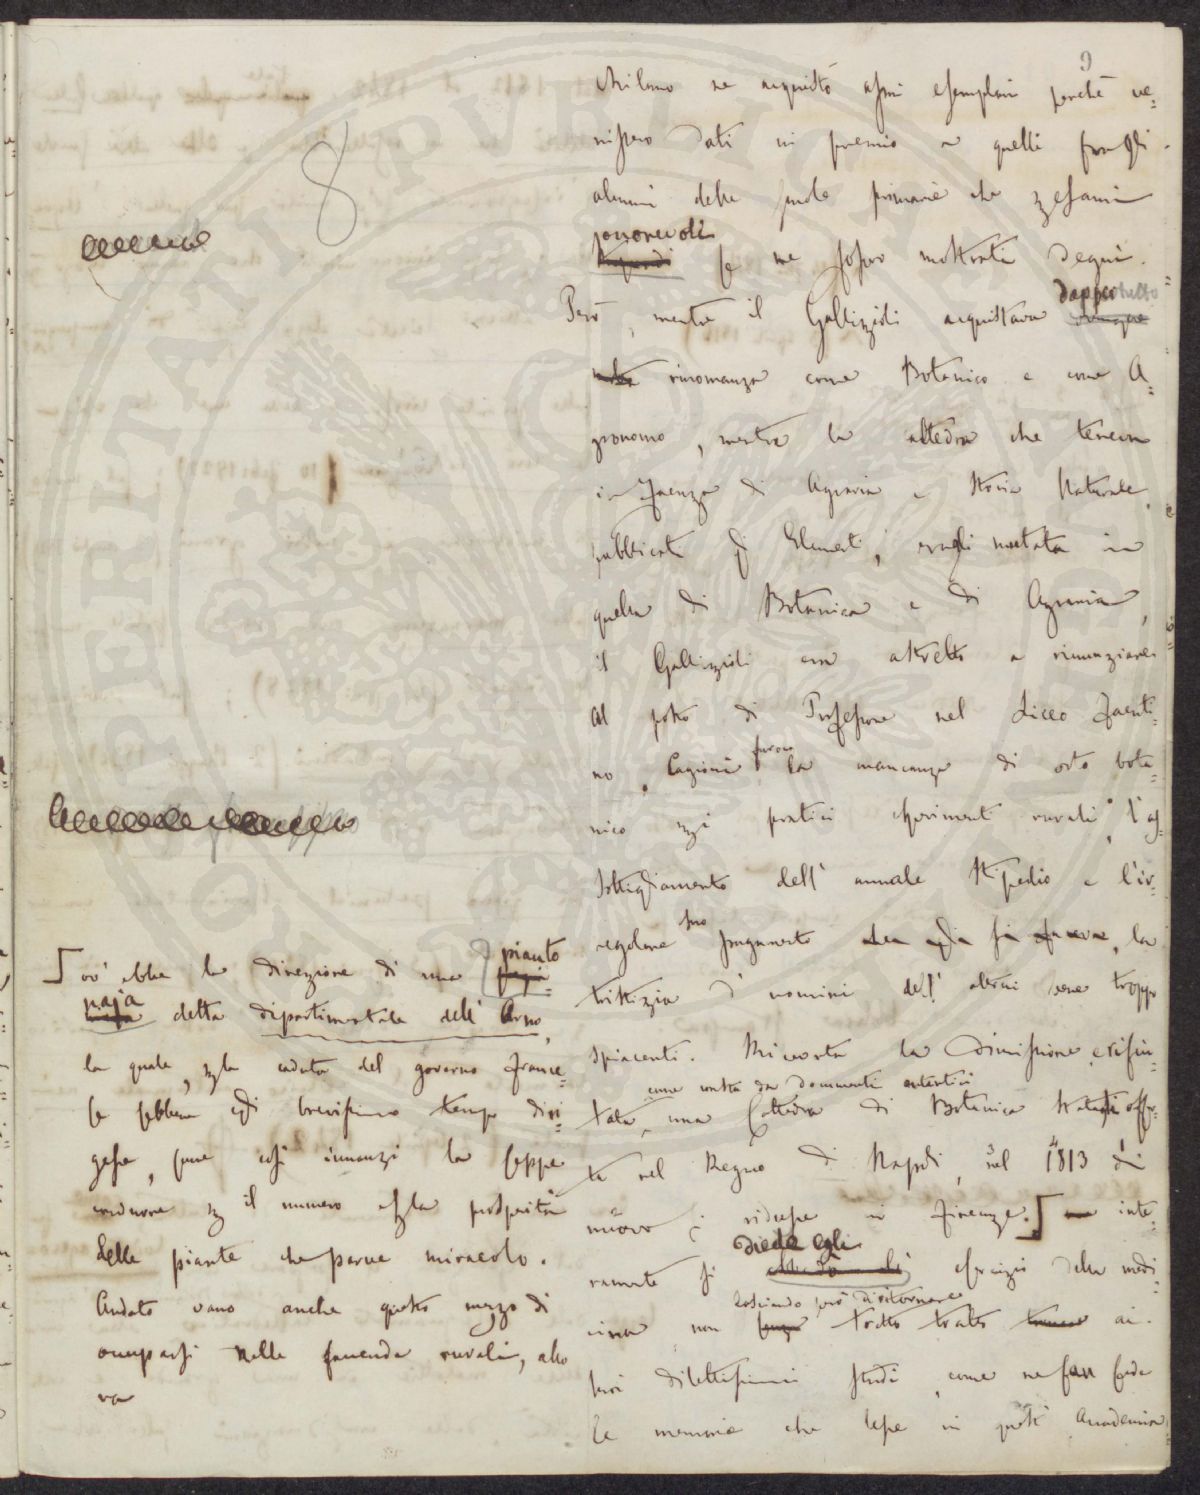 9
Milano ne acquistò assai esemplari perchè ve=
nissero dati in premio a quelli fra gli
alunni delle scuole primarie che
onorevoli
se ne fosser mostrati degni.
dappertutto
Però, mentre il Gallizioli acquistava ovunque
molta rinomanza come Botanico e come A=
gronomo, mentre la cattedra che teneva
in Faenza di Agraria e Storia Naturale,
pubblicati gli Elementi, eragli mutata in
quella di Botanica e di Agraria,
il Gallizioli era astretto a rinunziare
al posto di Professore nel Liceo Faenti=
no. Cagioni furono la mancanza di orto bota=
nico pei pratici esperimenti rurali, l'as=
sottigliamento dell' annuale stipendio e l'ir=
regolare suo pagamento, la
tristizia d' uomini dell' altrui bene troppo
spiacenti. Ricevuta la dimissione, e rifiu=
come consta da documenti autentici
tata, una Cattedra di Botanica statagli offer=
ta nel Regno di Napoli, nel 1813 di
nuovo si ridusse in Firenze. inte=
diede egli
ramente si esercizio della medi
lasciando però di ritornare
cina non tratto tratto ai
suoi dilettissimi studi, come ne fan fede
le memorie che lesse in questa Accademia
8
ov' ebbe la direzione di una pianto
naja detta dipartimentale dell' Arno,
la quale, per la caduta del governo france=
se sebbene egli brevissimo tempo diri
gesse, pure così innanzi la seppe
condurre per il numero e per la prosperità
delle piante che parve miracolo.
Andato vano anche questo mezzo di
occuparsi nelle faccende rurali, allo
ra